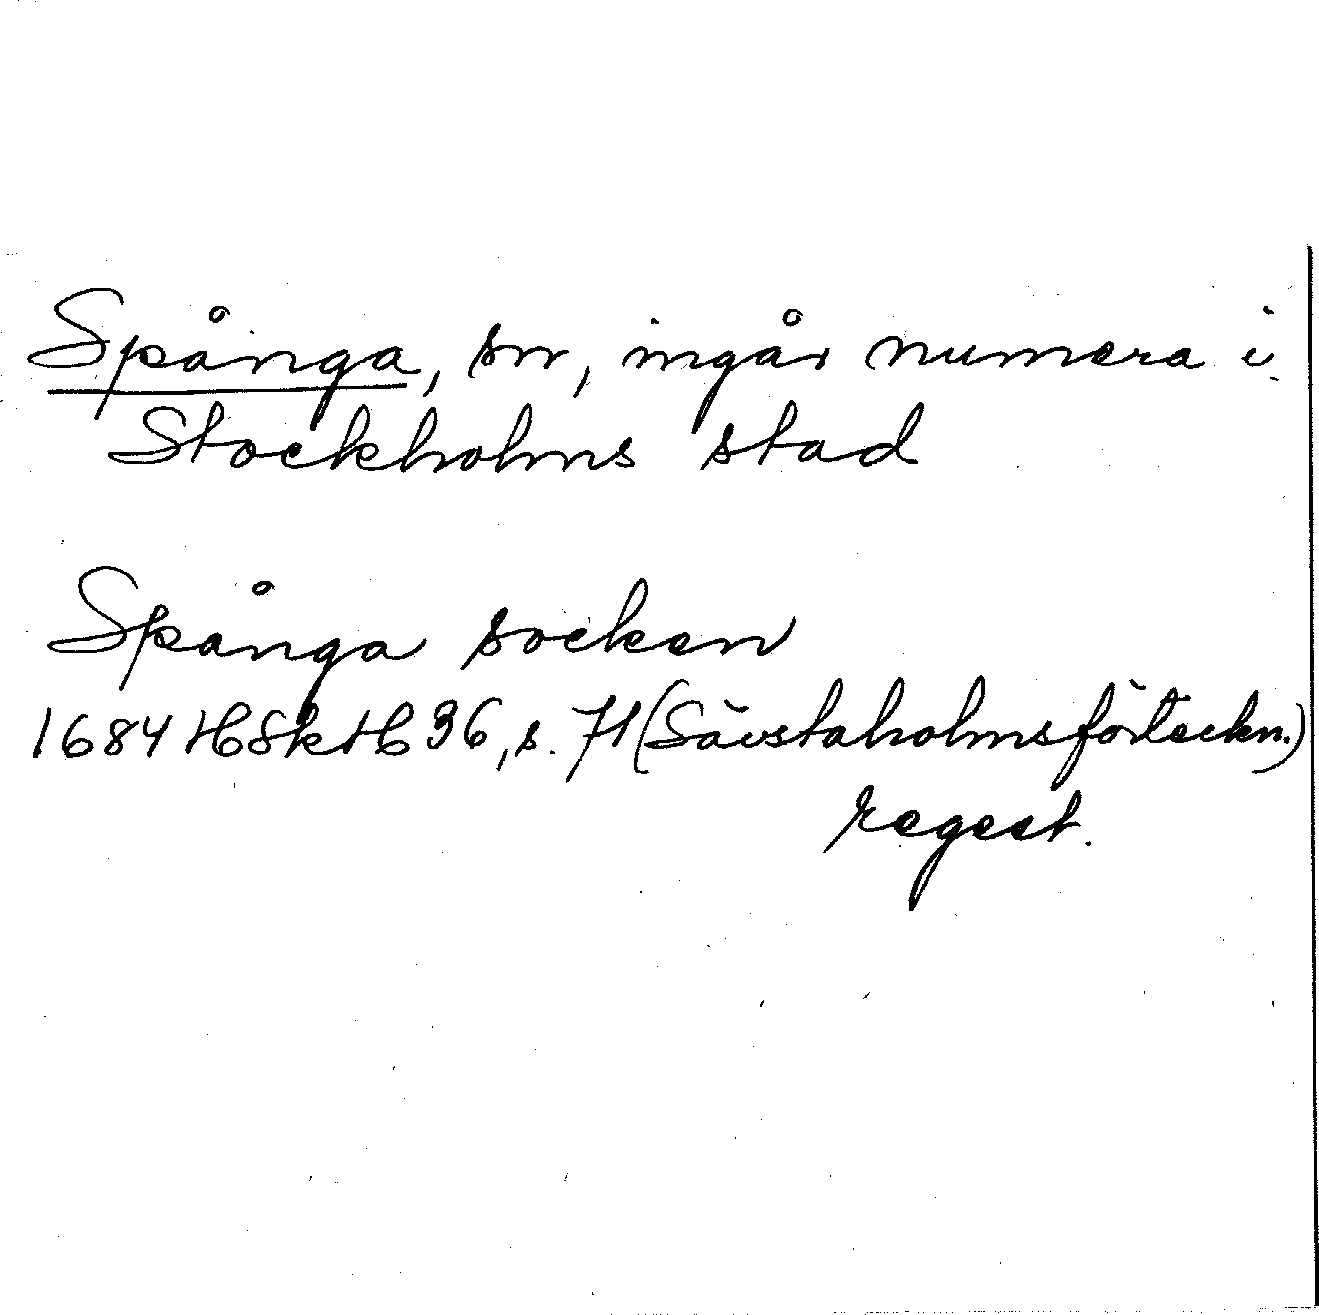 Spånga, sn, ingår numera i
Stockholms stad
Spånga socken
1684 HSkH 36, s. 71 (Sävstaholmsförteckn.)
regest.